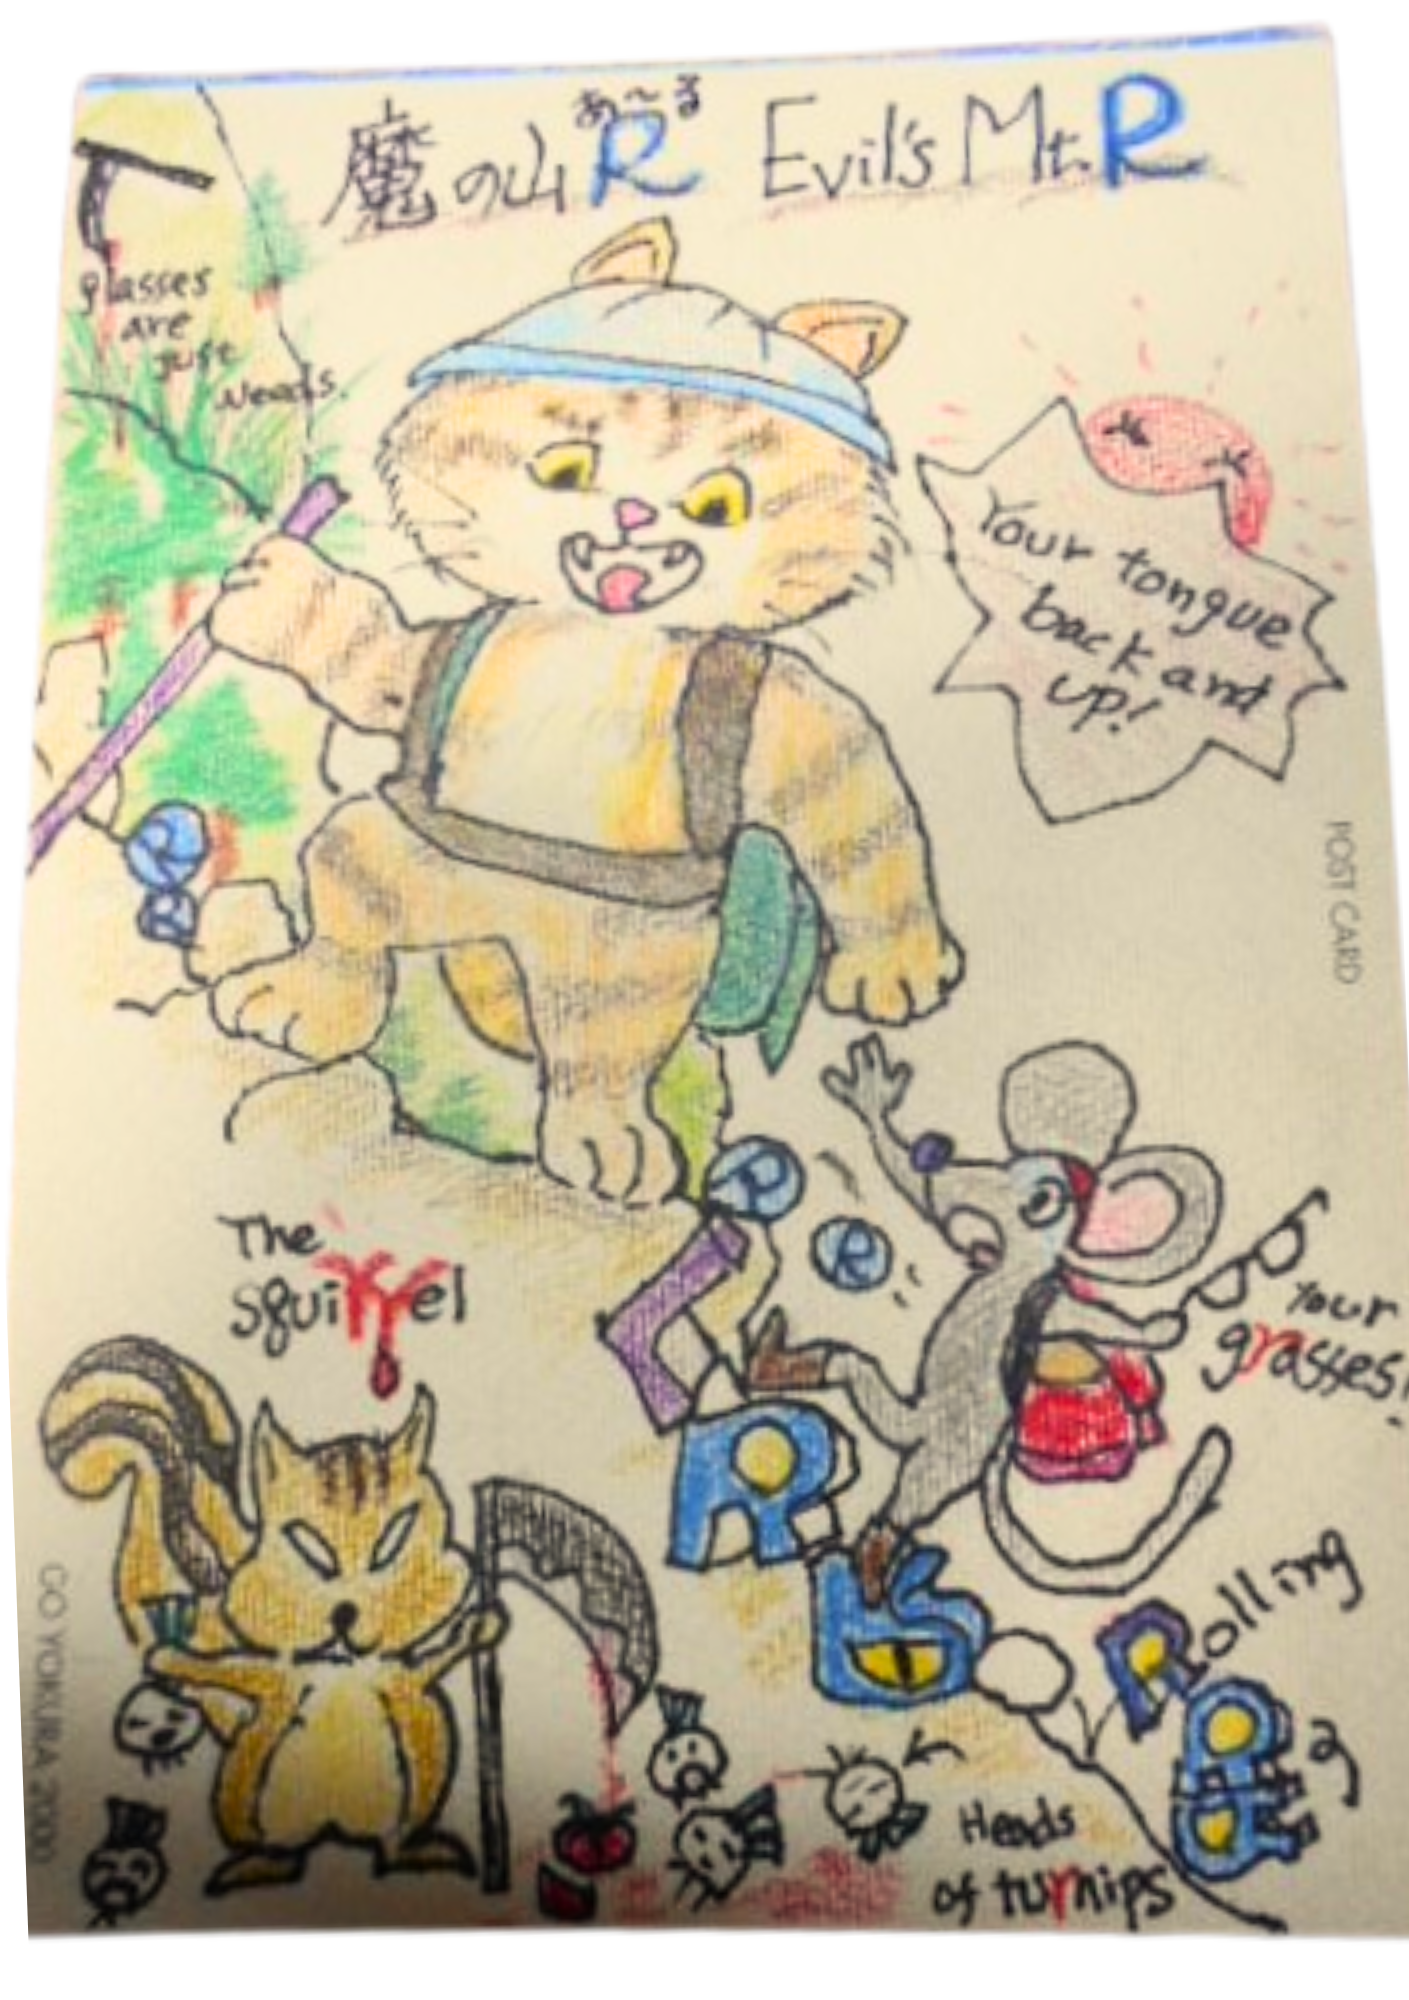 あ〜る
魔の山R Evil's Mt. R
glasses
are
just
Needs.
Your tongue
back and
up!
POST CARD
R
R
R
R
The
squirrel
Your
grasses!
R
R
Rolling
Heads
of turnips
GO YOKURA 2000